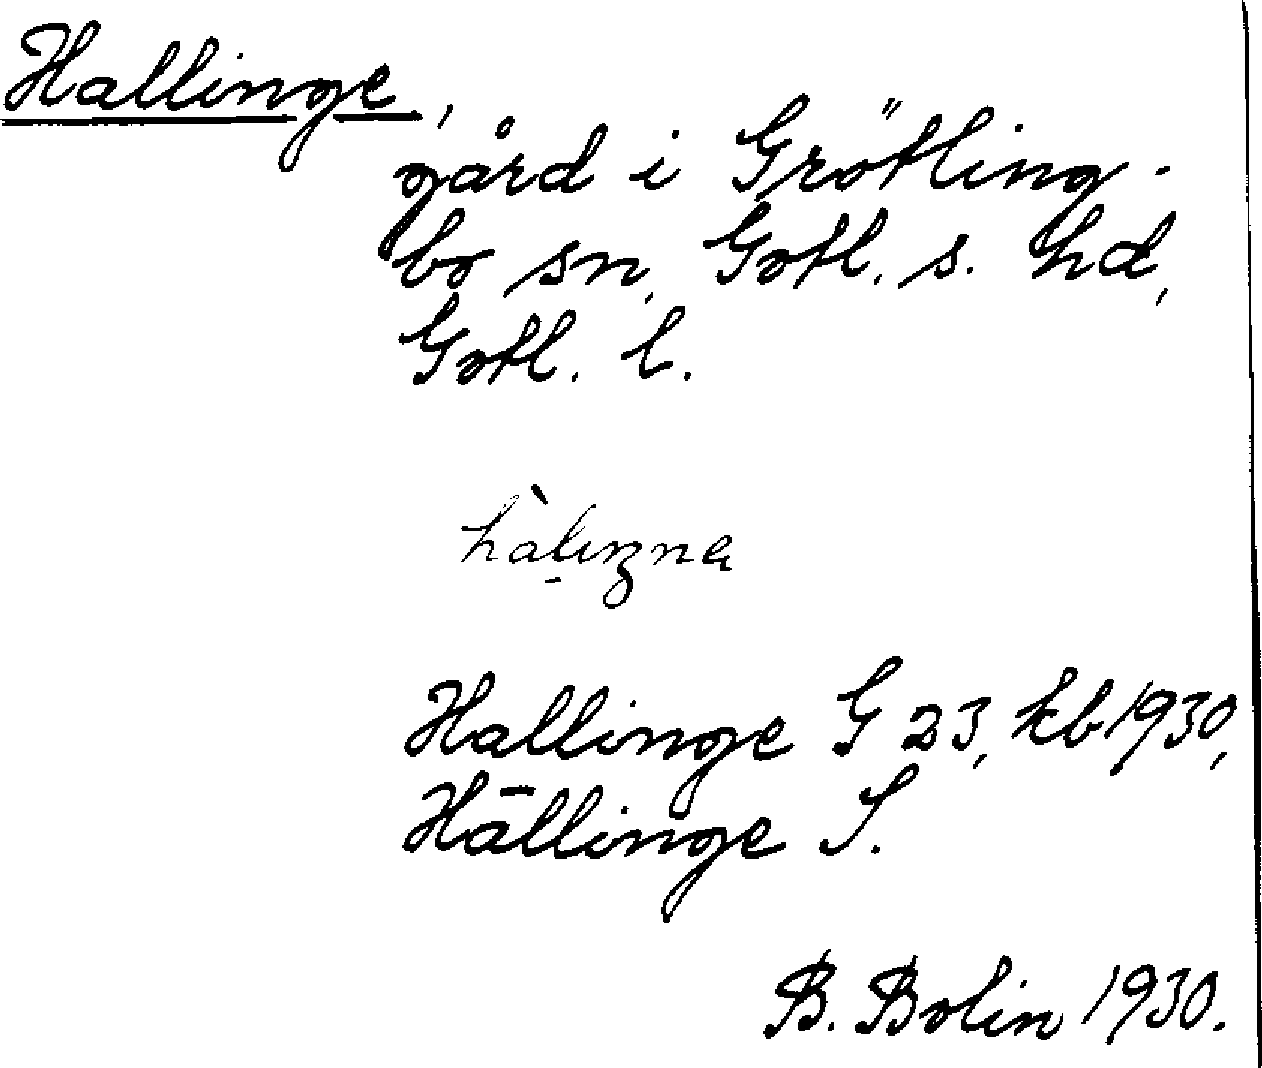 Hallinge,
gård i Grötling-
bo sn, Gotl. s. hd,
Gotl. l.
Hallinge G 23, kb 1930,
Hällinge S.
B. Bolin 1930.